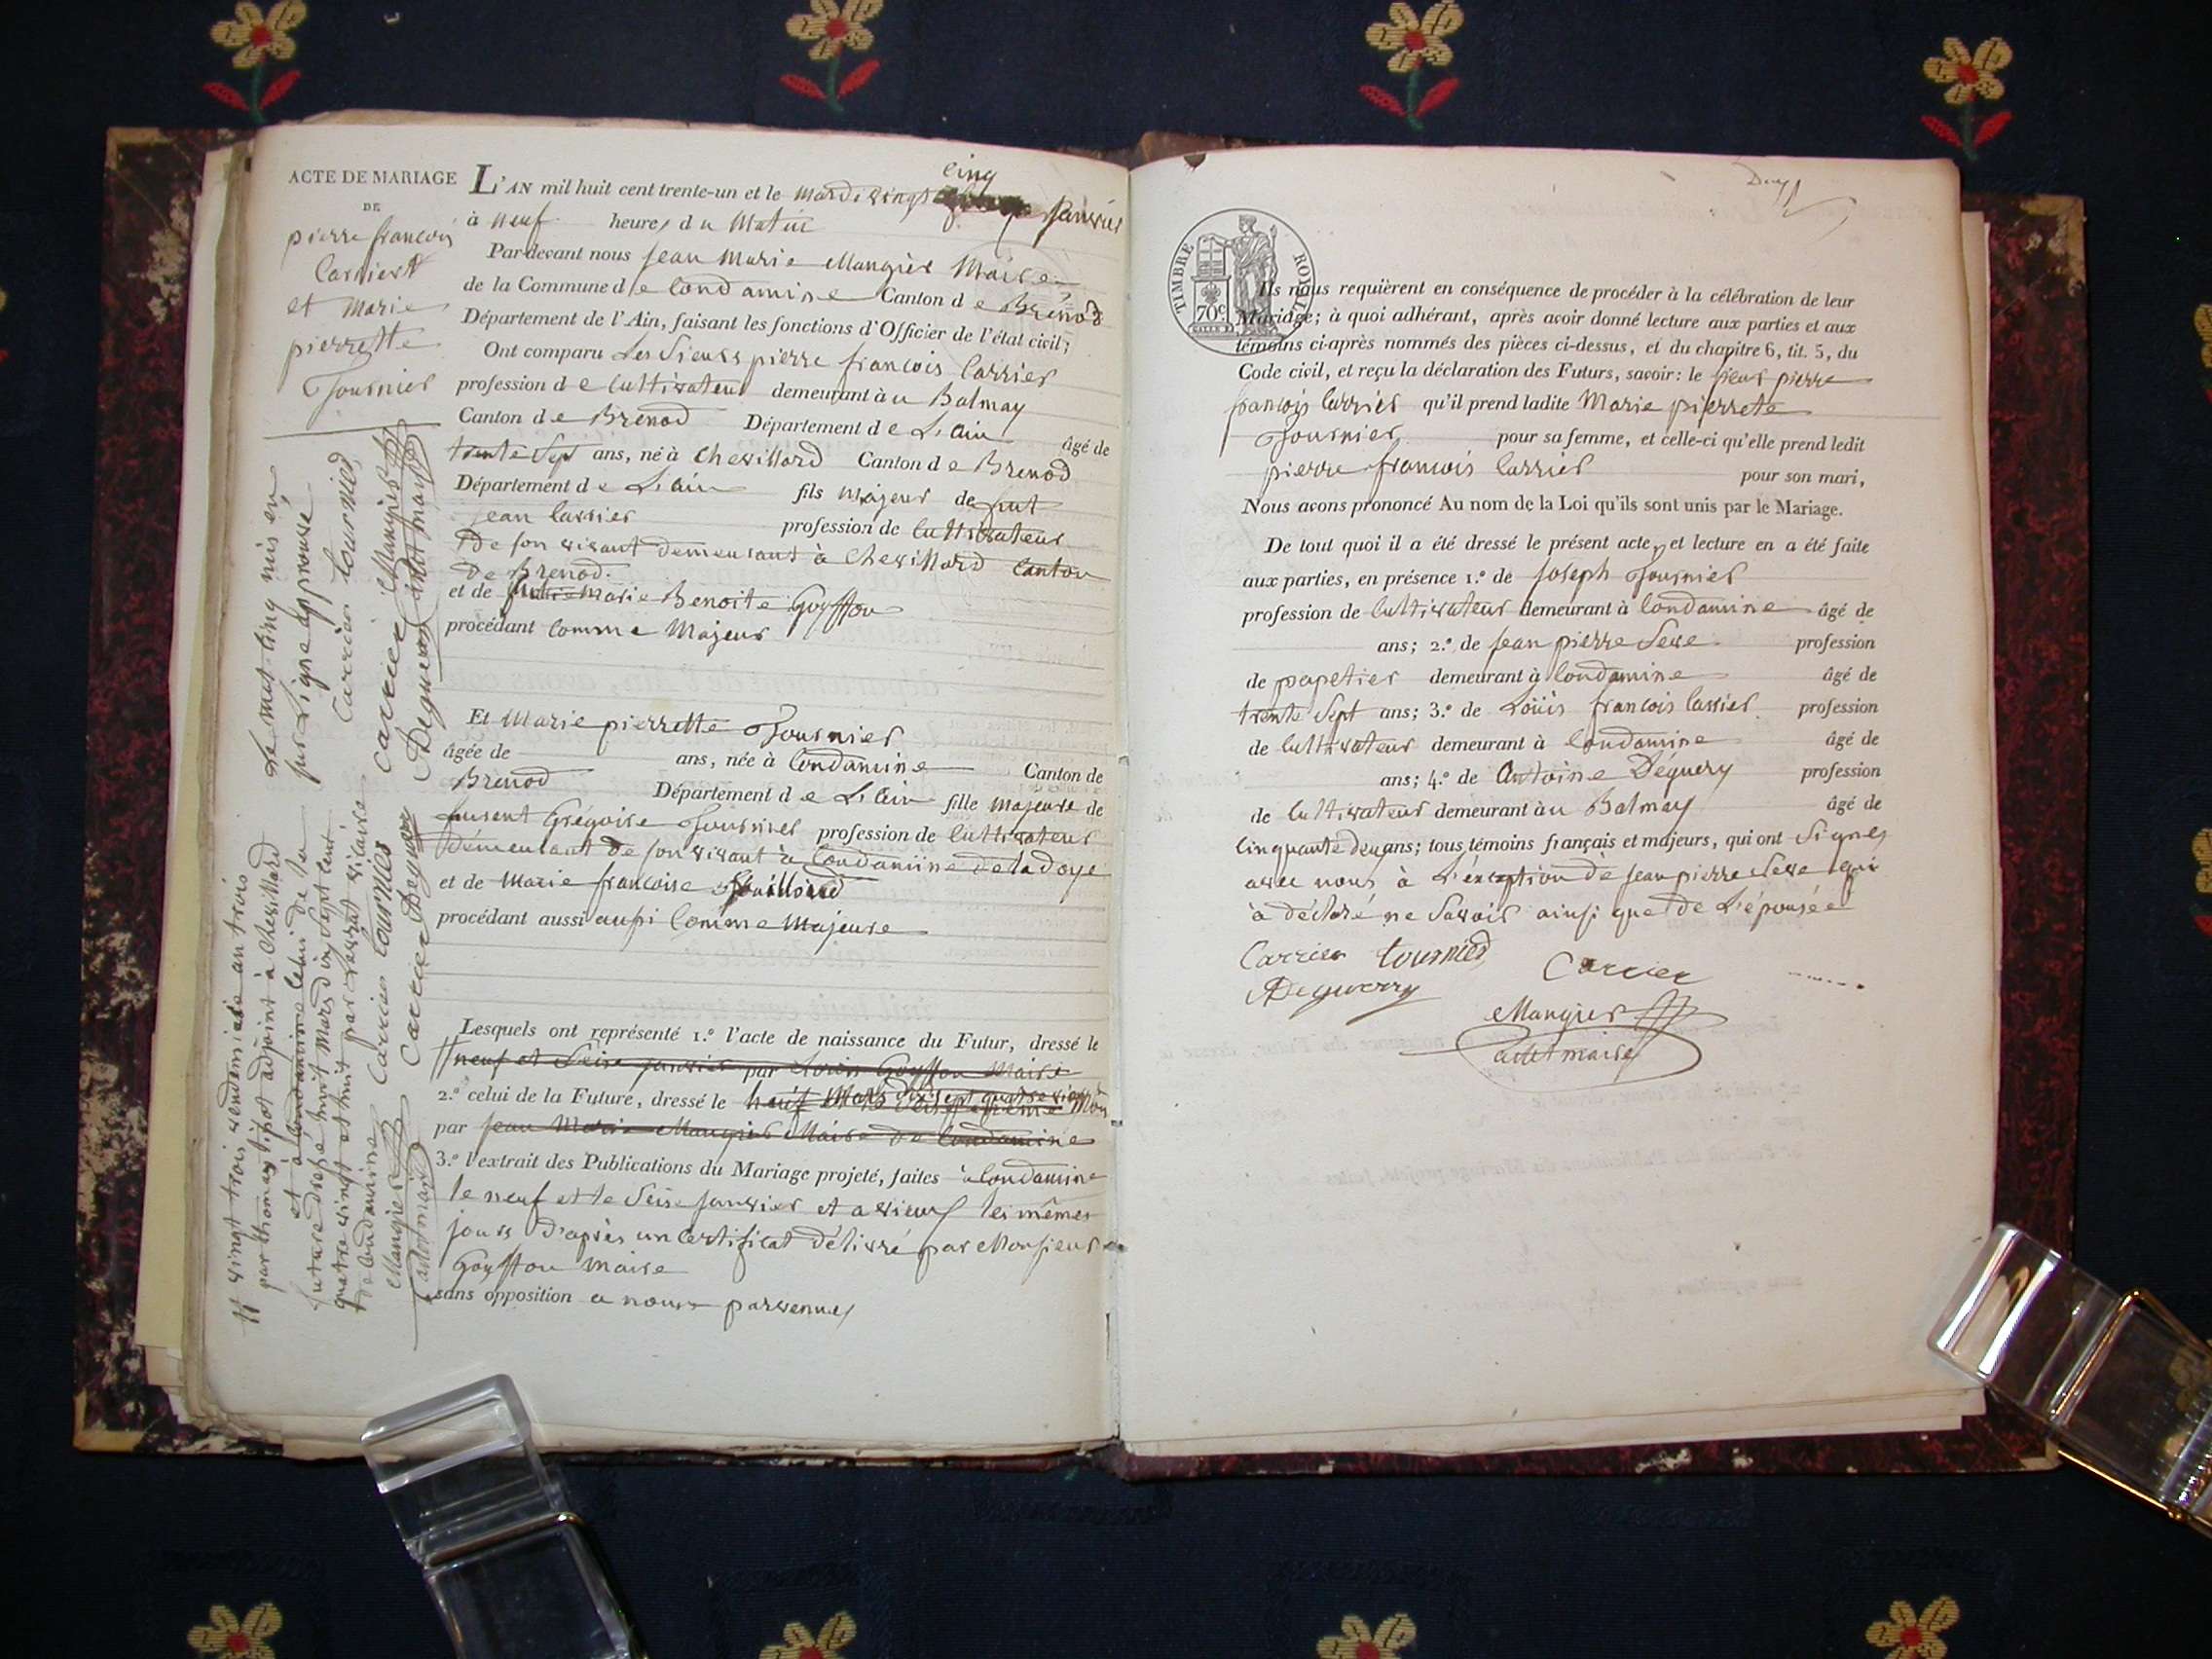 ACTE DE MARIAGE
DE
pierre françois
Carrier
et Marie
pierrette
Tournier
L'AN mil huit cent trente-un et le mardi vingt cinq janvier
à neuf heures du Matin
Par-devant nous jean Marie Mangier Maire
de la Commune de Condamine Canton de Brénod
Département de l'Ain, faisant les fonctions d'Officier de l'état civil;
Ont comparu Les Sieurs pierre françois Carrier
profession de Cultivateur demeurant à u Balmay
Canton de Brenod Département de L'ain âgé de
trente Sept ans, né à Chevillard Canton de Brenod
Département de L'ain fils majeur de fut
jean Carrier profession de Cultivateur
De son vivant demeurant à Chevillard Canton
De Brenod.
et de Marie Benoite Goyffon
procédant comme Majeur
Et Marie pierrette Tournier
âgée de ans, née à Condamine Canton de
Brenod Département de L'ain fille majeure de
Laurent Grégoire Tournier profession de Cultivateur
Demeurant de son vivant à Condamine de la doye
et de Marie françoise
procédant aussi aussi Comme Majeure
Lesquels ont représenté 1.º l'acte de naissance du Futur, dressé le
neuf et Seise janvier par Goyffon Maire
2.º celui de la Future, dressé le
par jean Marie Mangier Maire de Condamine
3.º l'extrait des Publications du Mariage projeté, faites à Condamine
le neuf et le Seise janvier et a vieux les mêmes
jours D'après un Certificat délivré par Monsieur
Goyffon maire
sans opposition a nous parvenues
Le mot Cinq mis en
sur Ligne approuvé
Carrier tournier
carrier Mangier
Deguerry adot maire
vingt trois vendemiaire an trois
par thomas tissot adjoint à Chevillard
et à Condamine Celui de la
future dressé huit Mars dix sept Cent
quatre vingt et huit par vicaire
de Condamine
Carrier tournier
Mangier Carrier Deguerry
adot maire
TIMBRE ROYAL
70c
Ils nous requièrent en conséquence de procéder à la célébration de leur
Mariage; à quoi adhérant, après avoir donné lecture aux parties et aux
témoins ci-après nommés des pièces ci-dessus, et du chapitre 6, tit. 5, du
Code civil, et reçu la déclaration des Futurs, savoir: le sieur pierre
françois Carrier qu'il prend ladite Marie pierrete
Tournier pour sa femme, et celle-ci qu'elle prend ledit
pierre françois Carrier pour son mari,
Nous avons prononcé Au nom de la Loi qu'ils sont unis par le Mariage.
De tout quoi il a été dressé le présent acte, et lecture en a été faite
aux parties, en présence 1.º de Joseph Tournier
profession de Cultivateur demeurant à Condamine âgé de
ans; 2.º de jean pierre Seve profession
de papetier demeurant à Condamine âgé de
trente Sept ans; 3.º de Loüis françois Carrier profession
de Cultivateur demeurant à Condamine âgé de
ans; 4.º de Antoine Déguery profession
de Cultivateur demeurant à u Balmay âgé de
Cinquante deux ans; tous témoins français et majeurs, qui ont Signes
avec nous à L'éxception de jean pierre Seve qui
à déclaré ne Savoir ainsi que de L'épousée
Carrier tournier Carrier
Deguerry
Mangier
adot maire